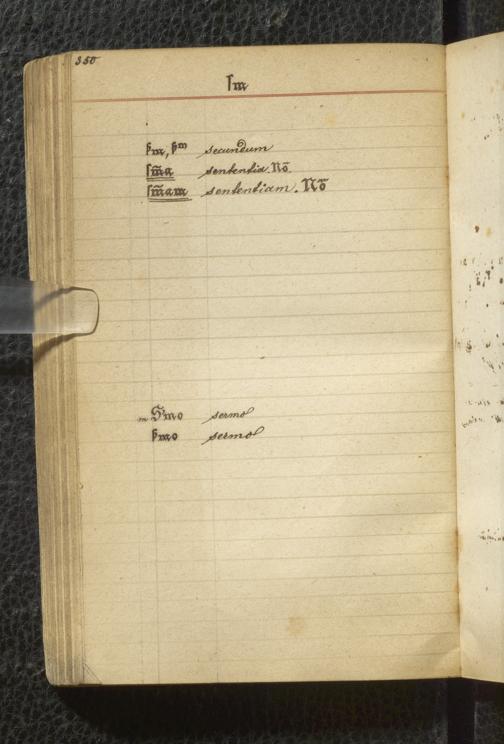 350
ſm
ꝭm, ꝭᵐ secundum
ſm̃a sententia. No̅
ſm̃am sententiam. No̅
m S'mo sermo
ꝭmo sermo